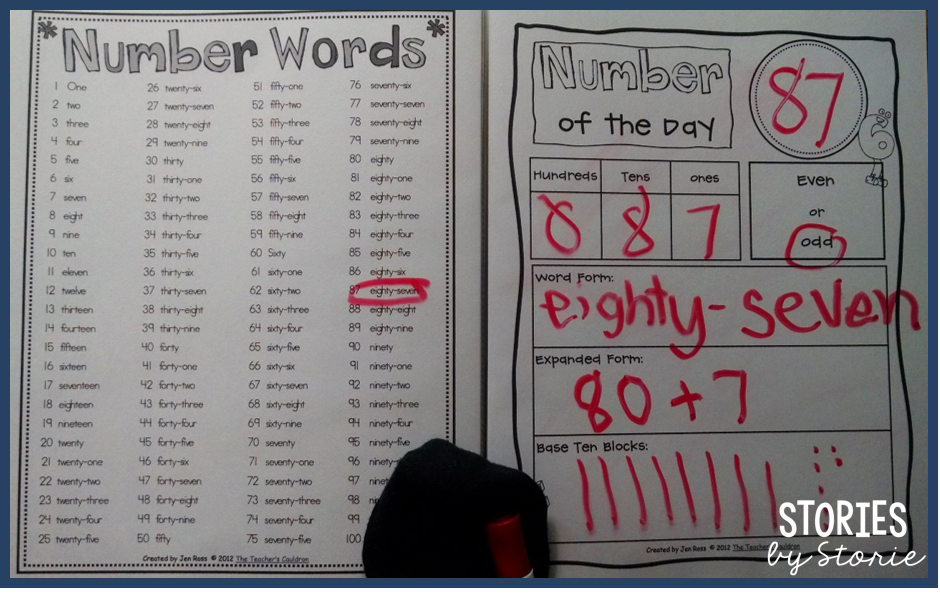 *Number Words*
1 One
2 two
3 three
4 four
5 five
6 six
7 seven
8 eight
9 nine
10 ten
11 eleven
12 twelve
13 thirteen
14 fourteen
15 fifteen
16 sixteen
17 seventeen
18 eighteen
19 nineteen
20 twenty
21 twenty-one
22 twenty-two
23 twenty-three
24 twenty-four
25 twenty-five
26 twenty-six
27 twenty-seven
28 twenty-eight
29 twenty-nine
30 thirty
31 thirty-one
32 thirty-two
33 thirty-three
34 thirty-four
35 thirty-five
36 thirty-six
37 thirty-seven
38 thirty-eight
39 thirty-nine
40 forty
41 forty-one
42 forty-two
43 forty-three
44 forty-four
45 forty-five
46 forty-six
47 forty-seven
48 forty-eight
49 forty-nine
50 fifty
51 fifty-one
52 fifty-two
53 fifty-three
54 fifty-four
55 fifty-five
56 fifty-six
57 fifty-seven
58 fifty-eight
59 fifty-nine
60 Sixty
61 sixty-one
62 sixty-two
63 sixty-three
64 sixty-four
65 sixty-five
66 sixty-six
67 sixty-seven
68 sixty-eight
69 sixty-nine
70 seventy
71 seventy-one
72 seventy-two
73 seventy-three
74 seventy-four
75 seventy-five
76 seventy-six
77 seventy-seven
78 seventy-eight
79 seventy-nine
80 eighty
81 eighty-one
82 eighty-two
83 eighty-three
84 eighty-four
85 eighty-five
86 eighty-six
87 eighty-seven
88 eighty-eight
89 eighty-nine
90 ninety
91 ninety-one
92 ninety-two
93 ninety-three
94 ninety-four
95 ninety-five
96 ninety-
97
98
99
100
Created by Jen Ross © 2012 The Teacher's Cauldron
Number
of the Day
87
Hundreds Tens ones
0 8 7
Even
or
odd
Word Form:
eighty-seven
Expanded Form:
80 + 7
Base Ten Blocks:
Created by Jen Ross © 2012 The Teacher's Cauldron
STORIES
by Storie